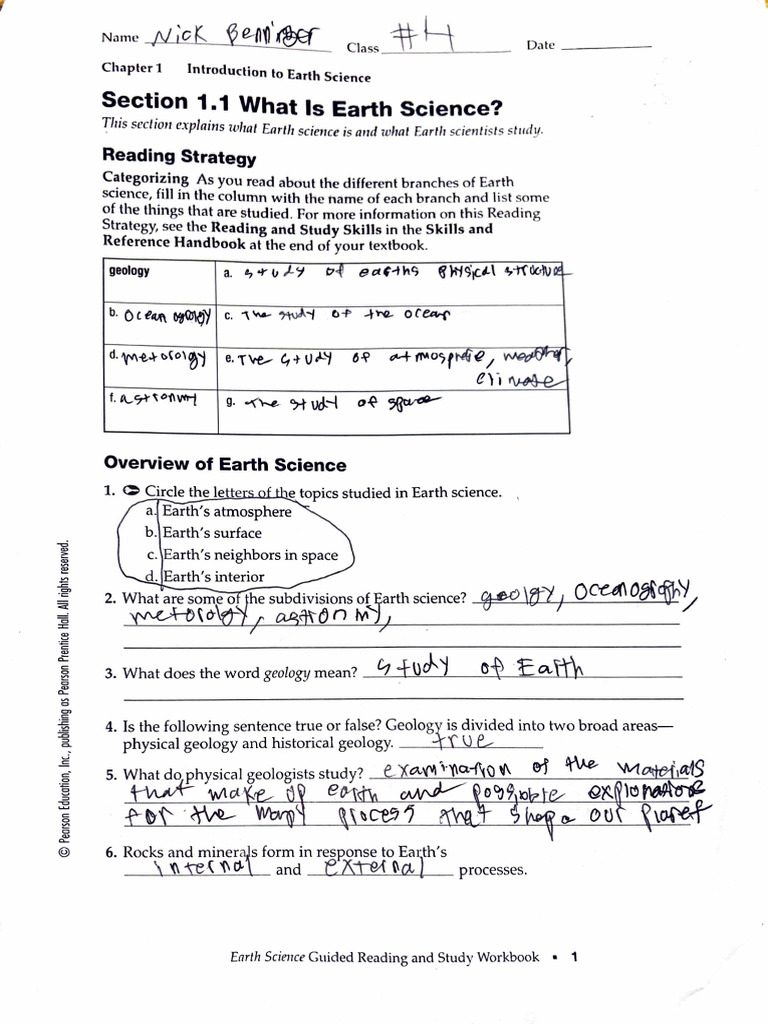 Name Nick Class #4 Date
Chapter 1 Introduction to Earth Science
Section 1.1 What Is Earth Science?
This section explains what Earth science is and what Earth scientists study.
Reading Strategy
Categorizing As you read about the different branches of Earth
science, fill in the column with the name of each branch and list some
of the things that are studied. For more information on this Reading
Strategy, see the Reading and Study Skills in the Skills and
Reference Handbook at the end of your textbook.
geology a. study of earths physical structure
b. c. The study of the ocean
d. metorology e. The study of atmospretie, weather,
climate
f. astronmy g. the study of space
Overview of Earth Science
1. Circle the letters of the topics studied in Earth science.
a. Earth's atmosphere
b. Earth's surface
c. Earth's neighbors in space
d. Earth's interior
2. What are some of the subdivisions of Earth science? geolgy, oceanography,
metorology, astronmy,
3. What does the word geology mean? study of Earth
4. Is the following sentence true or false? Geology is divided into two broad areas—
physical geology and historical geology. true
5. What do physical geologists study? examination of the materials
that make up earth and possible
for the many process that shape our planet
6. Rocks and minerals form in response to Earth's
internal and external processes.
© Pearson Education, Inc., publishing as Pearson Prentice Hall. All rights reserved.
Earth Science Guided Reading and Study Workbook ▪ 1